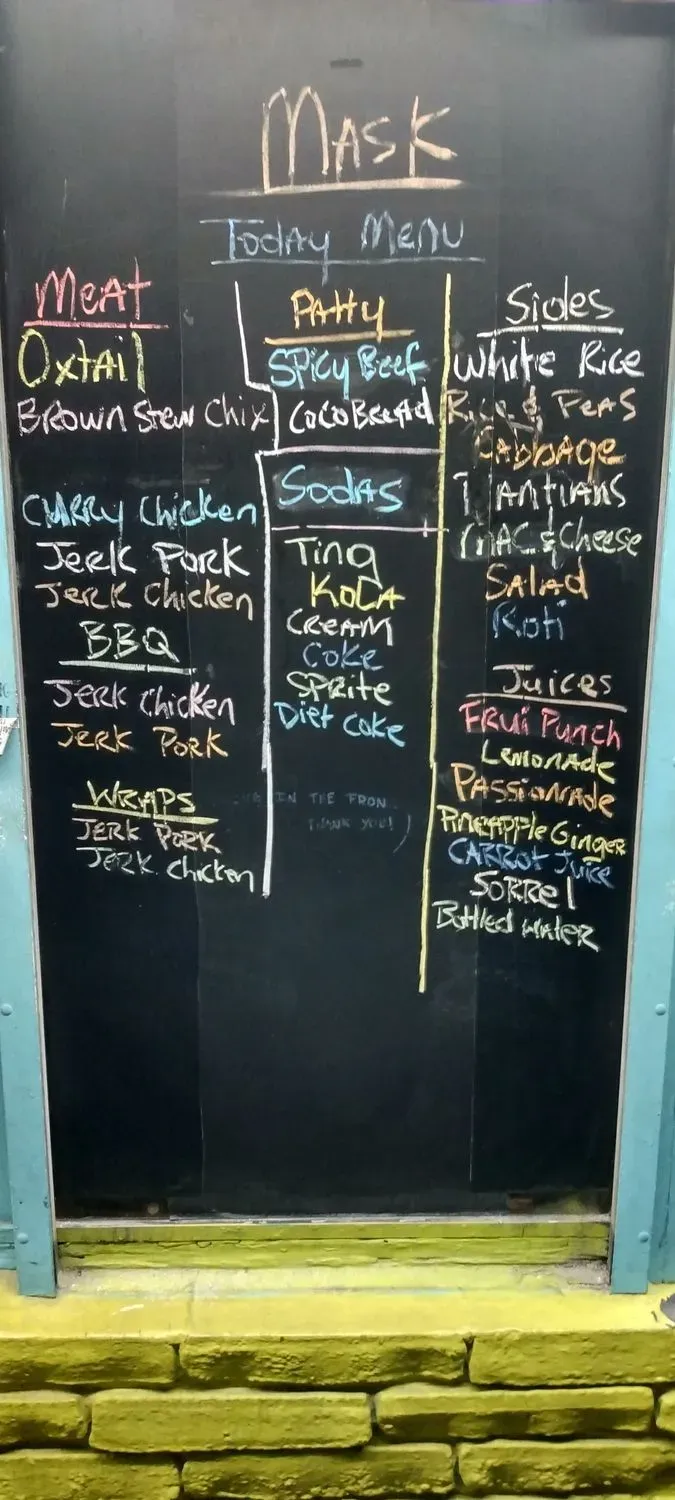 MASK
Today Menu
Meat
Oxtail
Brown Stew Chix
Curry Chicken
Jerk Pork
Jerk Chicken
BBQ
Jerk Chicken
Jerk Pork
Wraps
Jerk Pork
Jerk Chicken
Patty
Spicy Beef
Coco Bread
Sodas
Ting
Kola
Cream
Coke
Sprite
Diet Coke
IN THE FRON
THANK YOU! )
Sides
White Rice
Rice & Peas
Cabbage
Plantians
Mac & Cheese
Salad
Roti
Juices
Frui Punch
Lemonade
Passionade
Pineapple Ginger
Carrot Juice
Sorrel
Bottled Water